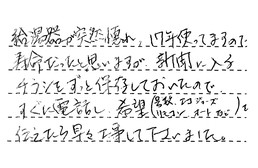 給湯器が突然壊れ、17年使ってますので
寿命だったと思いますが、新聞に入る
チラシをずっと保存しておいたので
すぐに電話し、希望(号数、エコジョーズ リモコン、オートか)を
伝えたら早々工事して下さいました。